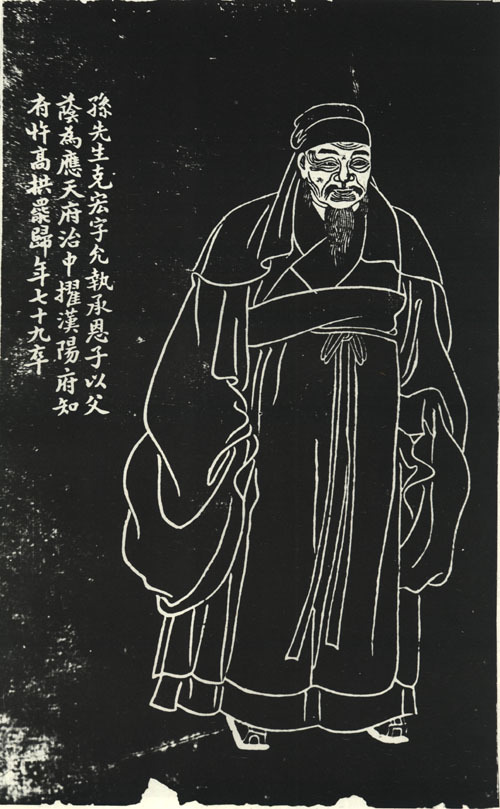 孫先生克宏字允執承恩子以父
蔭為應天府治中擢漢陽府知
府忤高拱罷歸年七十九卒